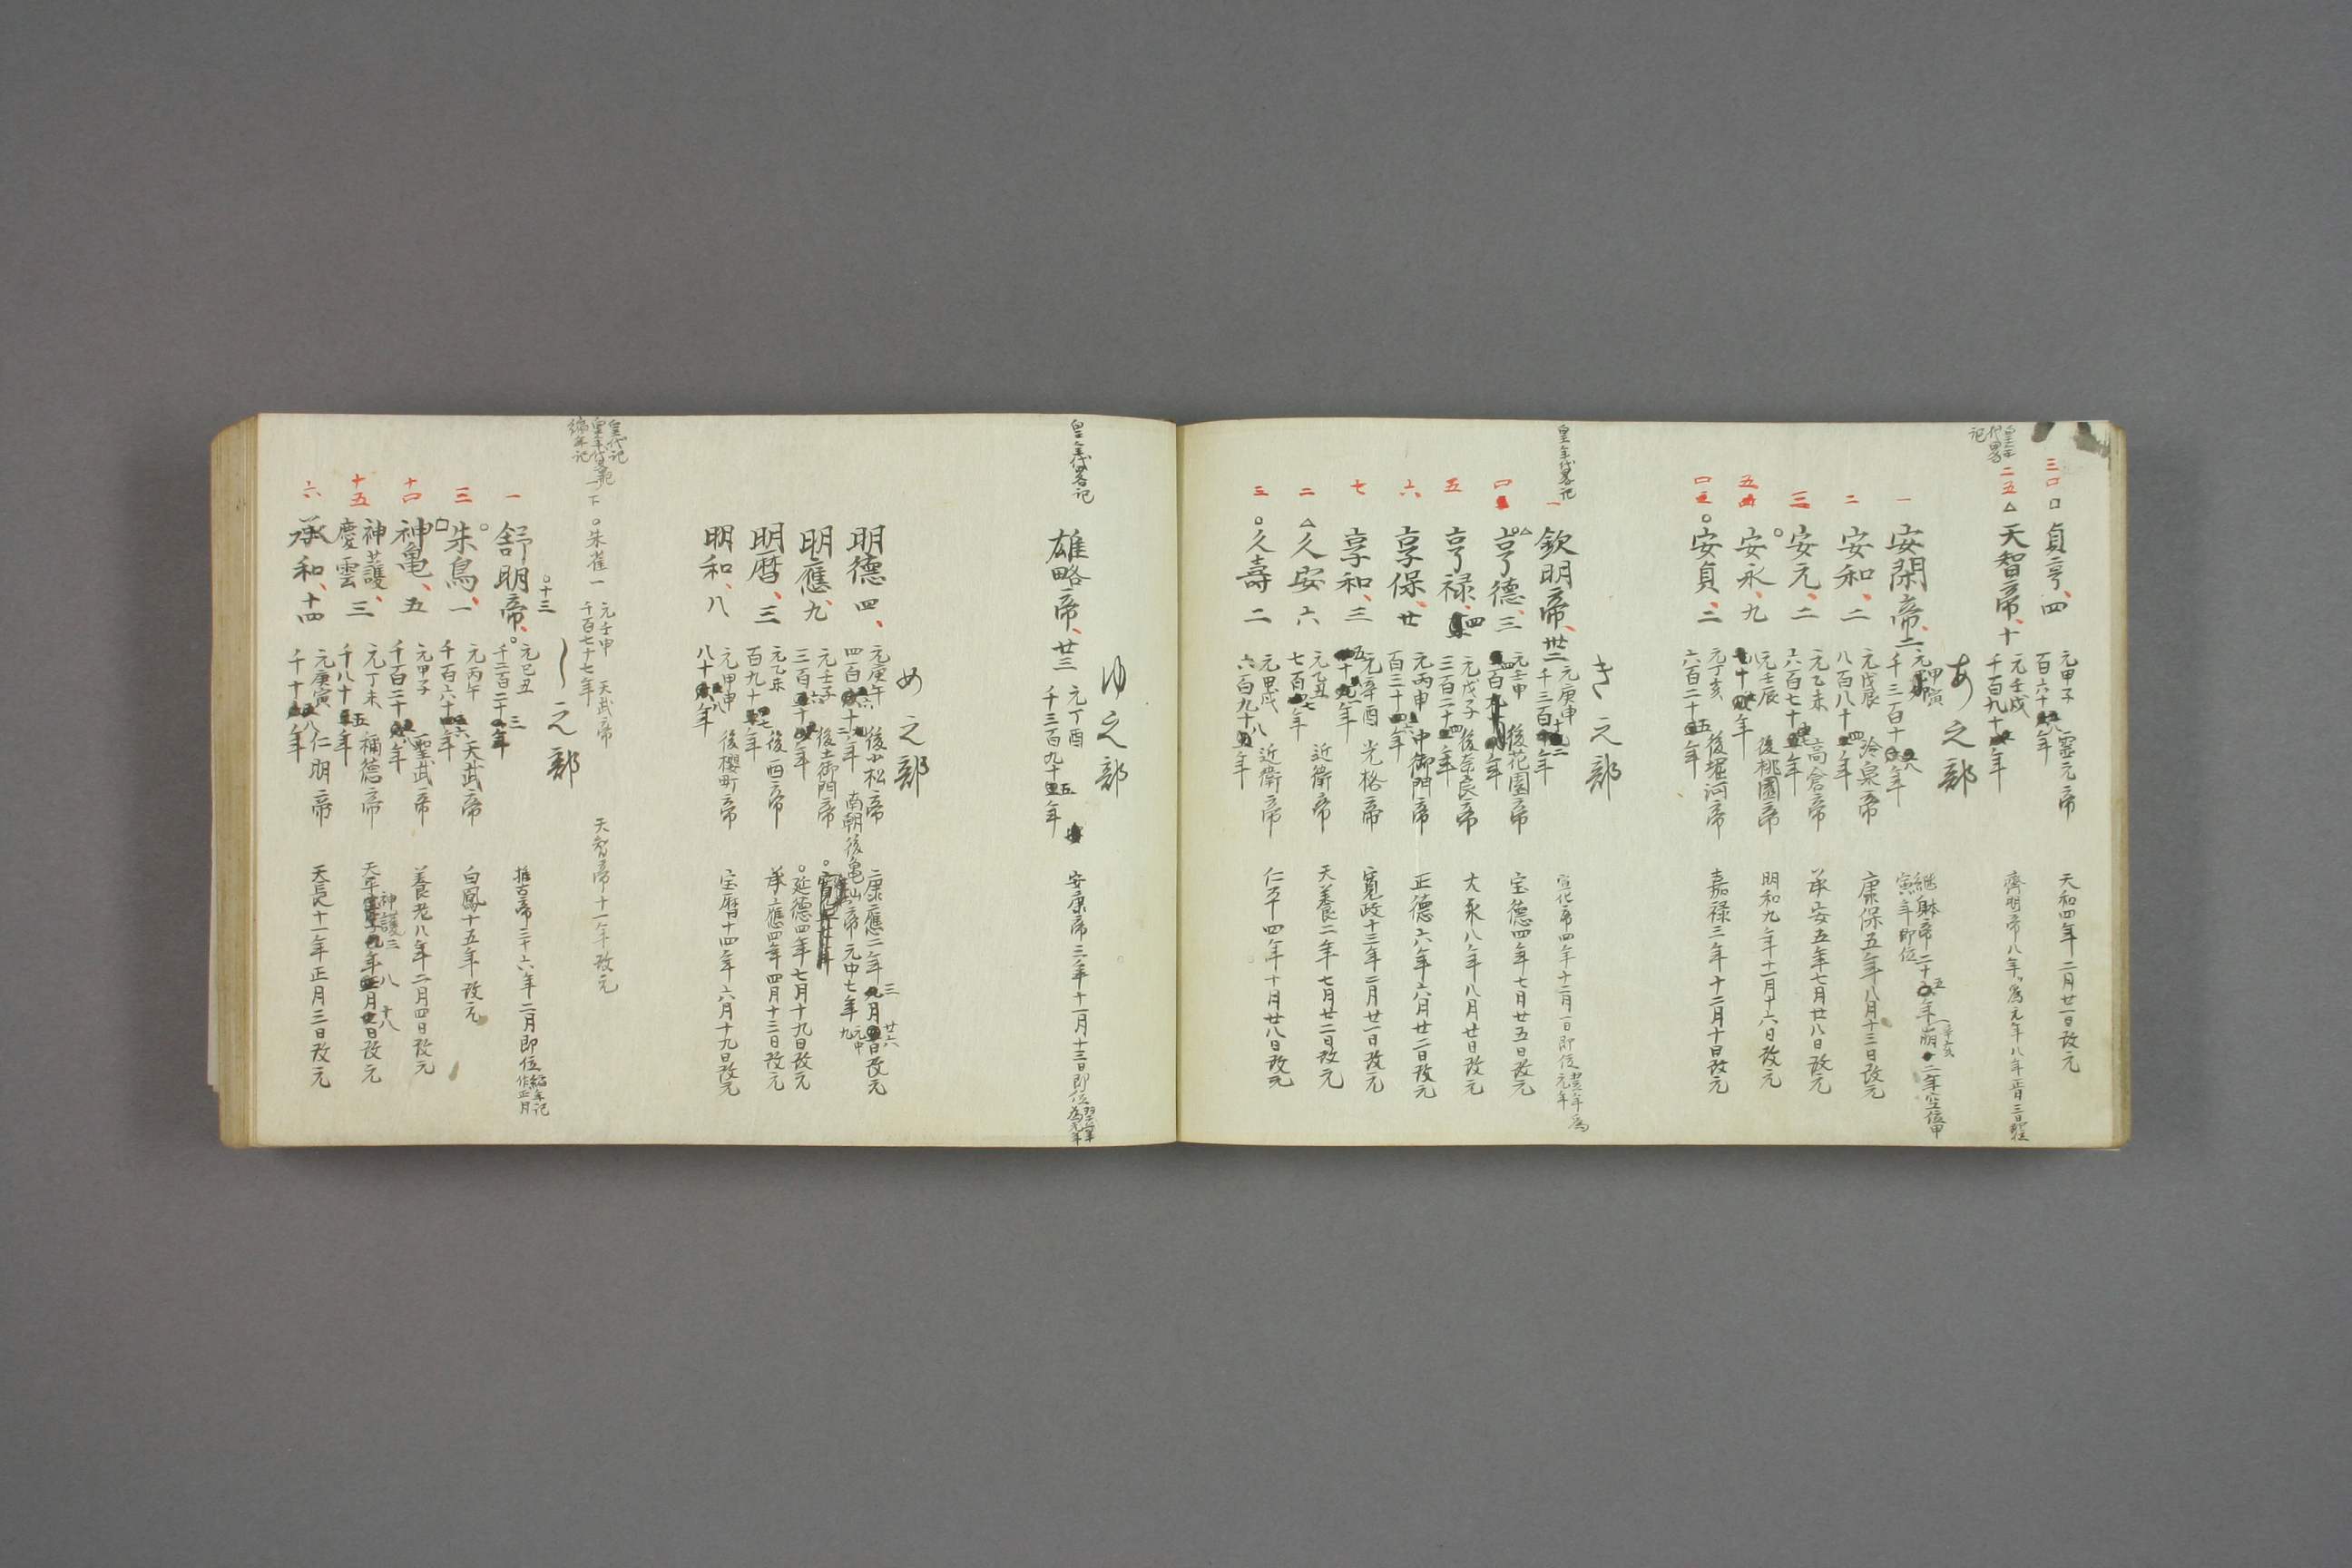 三口 □ 貞亨、四 元甲子 靈元帝 天和四年二月廿一日改元
百六十年
皇年代畧記
二五 △ 天智帝、十 元壬戌 齊明帝八年爲元年八年正月三日即位
千百九十年
あ之部
一 安閑帝、二 元甲寅 継躰帝二十五年崩二年空位甲
千三百十八年 寅年即位
一辛亥
二 安和、二 元戊辰 冷泉帝 康保五年八月十三日改元
八百八十四年
三 安元、二 元乙未 高倉帝 承安五年七月廿八日改元
六百七十年
五 安永、九 元壬辰 後桃園帝 明和九年十一月十六日改元
十年
口 ○安貞、二 元丁亥 後堀河帝 嘉禄三年十二月十日改元
六百二十五年
き之部
皇年代畧記
一 欽明帝、卅二 元庚申 宣化帝四年十二月一日即位翌年爲元年
千三百十二年
口 △ 亨德、三 元壬申 後花園帝 宝德四年七月廿五日改元
四百年
五 亨禄、四 元戊子 後奈良帝 大永八年八月廿日改元
三百二十四年
六 享保、廿 元丙申 中御門帝 正德六年六月廿二日改元
百三十六年
七 享和、三 元辛酉 光格帝 寛政十三年二月廿一日改元
五十年
二 △久安 六 元乙丑 近衛帝 天養二年七月廿二日改元
七百七年
三 ○久壽 二 元甲戌 近衛帝 仁平四年十月廿八日改元
六百九十八年
ゆ之部
皇年代畧記
雄略帝、廿三 元丁酉 安康帝三年十一月十三日即位翌年爲元年
千三百九十五年
め之部
明德 四、 元庚午 後小松帝 康應二年三月廿六日改元
四百六十二年 南朝後亀山帝元中七年 元中九
明應、九 元壬子 後土御門帝 ○延德四年七月十九日改元
三百六十年
明暦、三 元乙未 後西帝 承應四年四月十三日改元
百九十七年
明和、八 元甲申 後櫻町帝 宝暦十四年六月十九日改元
八十八年
皇代記
皇年代畧記
編年記
下 ○朱雀一 元壬申 天武帝 天智帝十一年改元
千百七十七年
し之部
一 舒明帝、 ○十三 元己丑 推古帝三十六年二月即位 編年記作正月
千二百二十三年
三 ○朱鳥、一 元丙午 天武帝 白鳳十五年改元
千百六十六年
十口 □神亀、五 元甲子 聖武帝 養老八年二月四日改元
千百二十八年
十五 神護、慶雲 三 元丁未 稱德帝 天平神護三年八月十八日改元
千八十五年
六 承和、十四 元庚寅 仁明帝 天長十一年正月三日改元
千十八年